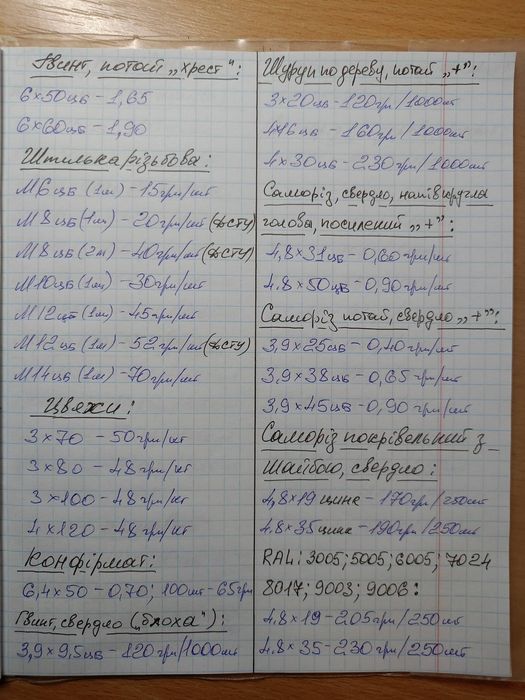 Гвинт, потай „хрест":
6×50цб – 1,65
6×60цб – 1,90
Штилька різьбова:
М6цб (1м) – 15грн/шт
М8цб (1м) – 20грн/шт (ДСТУ)
М8цб (2м) – 40грн/шт (ДСТУ)
М10цб (1м) – 30грн/шт
М12цб (1м) – 45грн/шт
М12цб (1м) – 52грн/шт (ДСТУ)
М14цб (1м) – 70грн/шт
Цвяжи:
3×70 – 50грн/кг
3×80 – 48грн/кг
3×100 – 48грн/кг
4×120 – 48грн/кг
Конфірмат:
6,4×50 – 0,70; 100шт – 65грн
Гвинт, свердло („блоха"):
3,9×9,5цб – 120грн/1000шт
Шуруп по дереву, потай „+":
3×20цб – 120грн/1000шт
4×16цб – 160грн/1000шт
4×30цб – 230грн/1000шт
Саморіз, свердло, напівкругла
голова, посилений „+":
4,8×31цб – 0,60грн/шт
4,8×50цб – 0,90грн/шт
Саморіз потай, свердло „+":
3,9×25цб – 0,40грн/шт
3,9×38цб – 0,65грн/шт
3,9×45цб – 0,90грн/шт
Саморіз покрівельний з
шайбою, свердло:
4,8×19 цинк – 170грн/250шт
4,8×35 цинк – 190грн/250шт
RAL: 3005; 5005; 6005; 7024
8017; 9003; 9006:
4,8×19 – 205грн/250шт
4,8×35 – 230грн/250шт